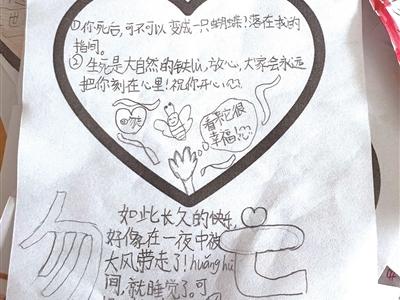 ①你死后,可不可以变成一只蝴蝶!落在我的
指间。
②生死是大自然的铁则,放心,大家会永远
把你刻在心里!祝你开心
看来它很
幸福!
勿
忘
如此长久的快乐,
好像在一夜中被
大风带走了!huǎng hū
间,就睡觉了。可